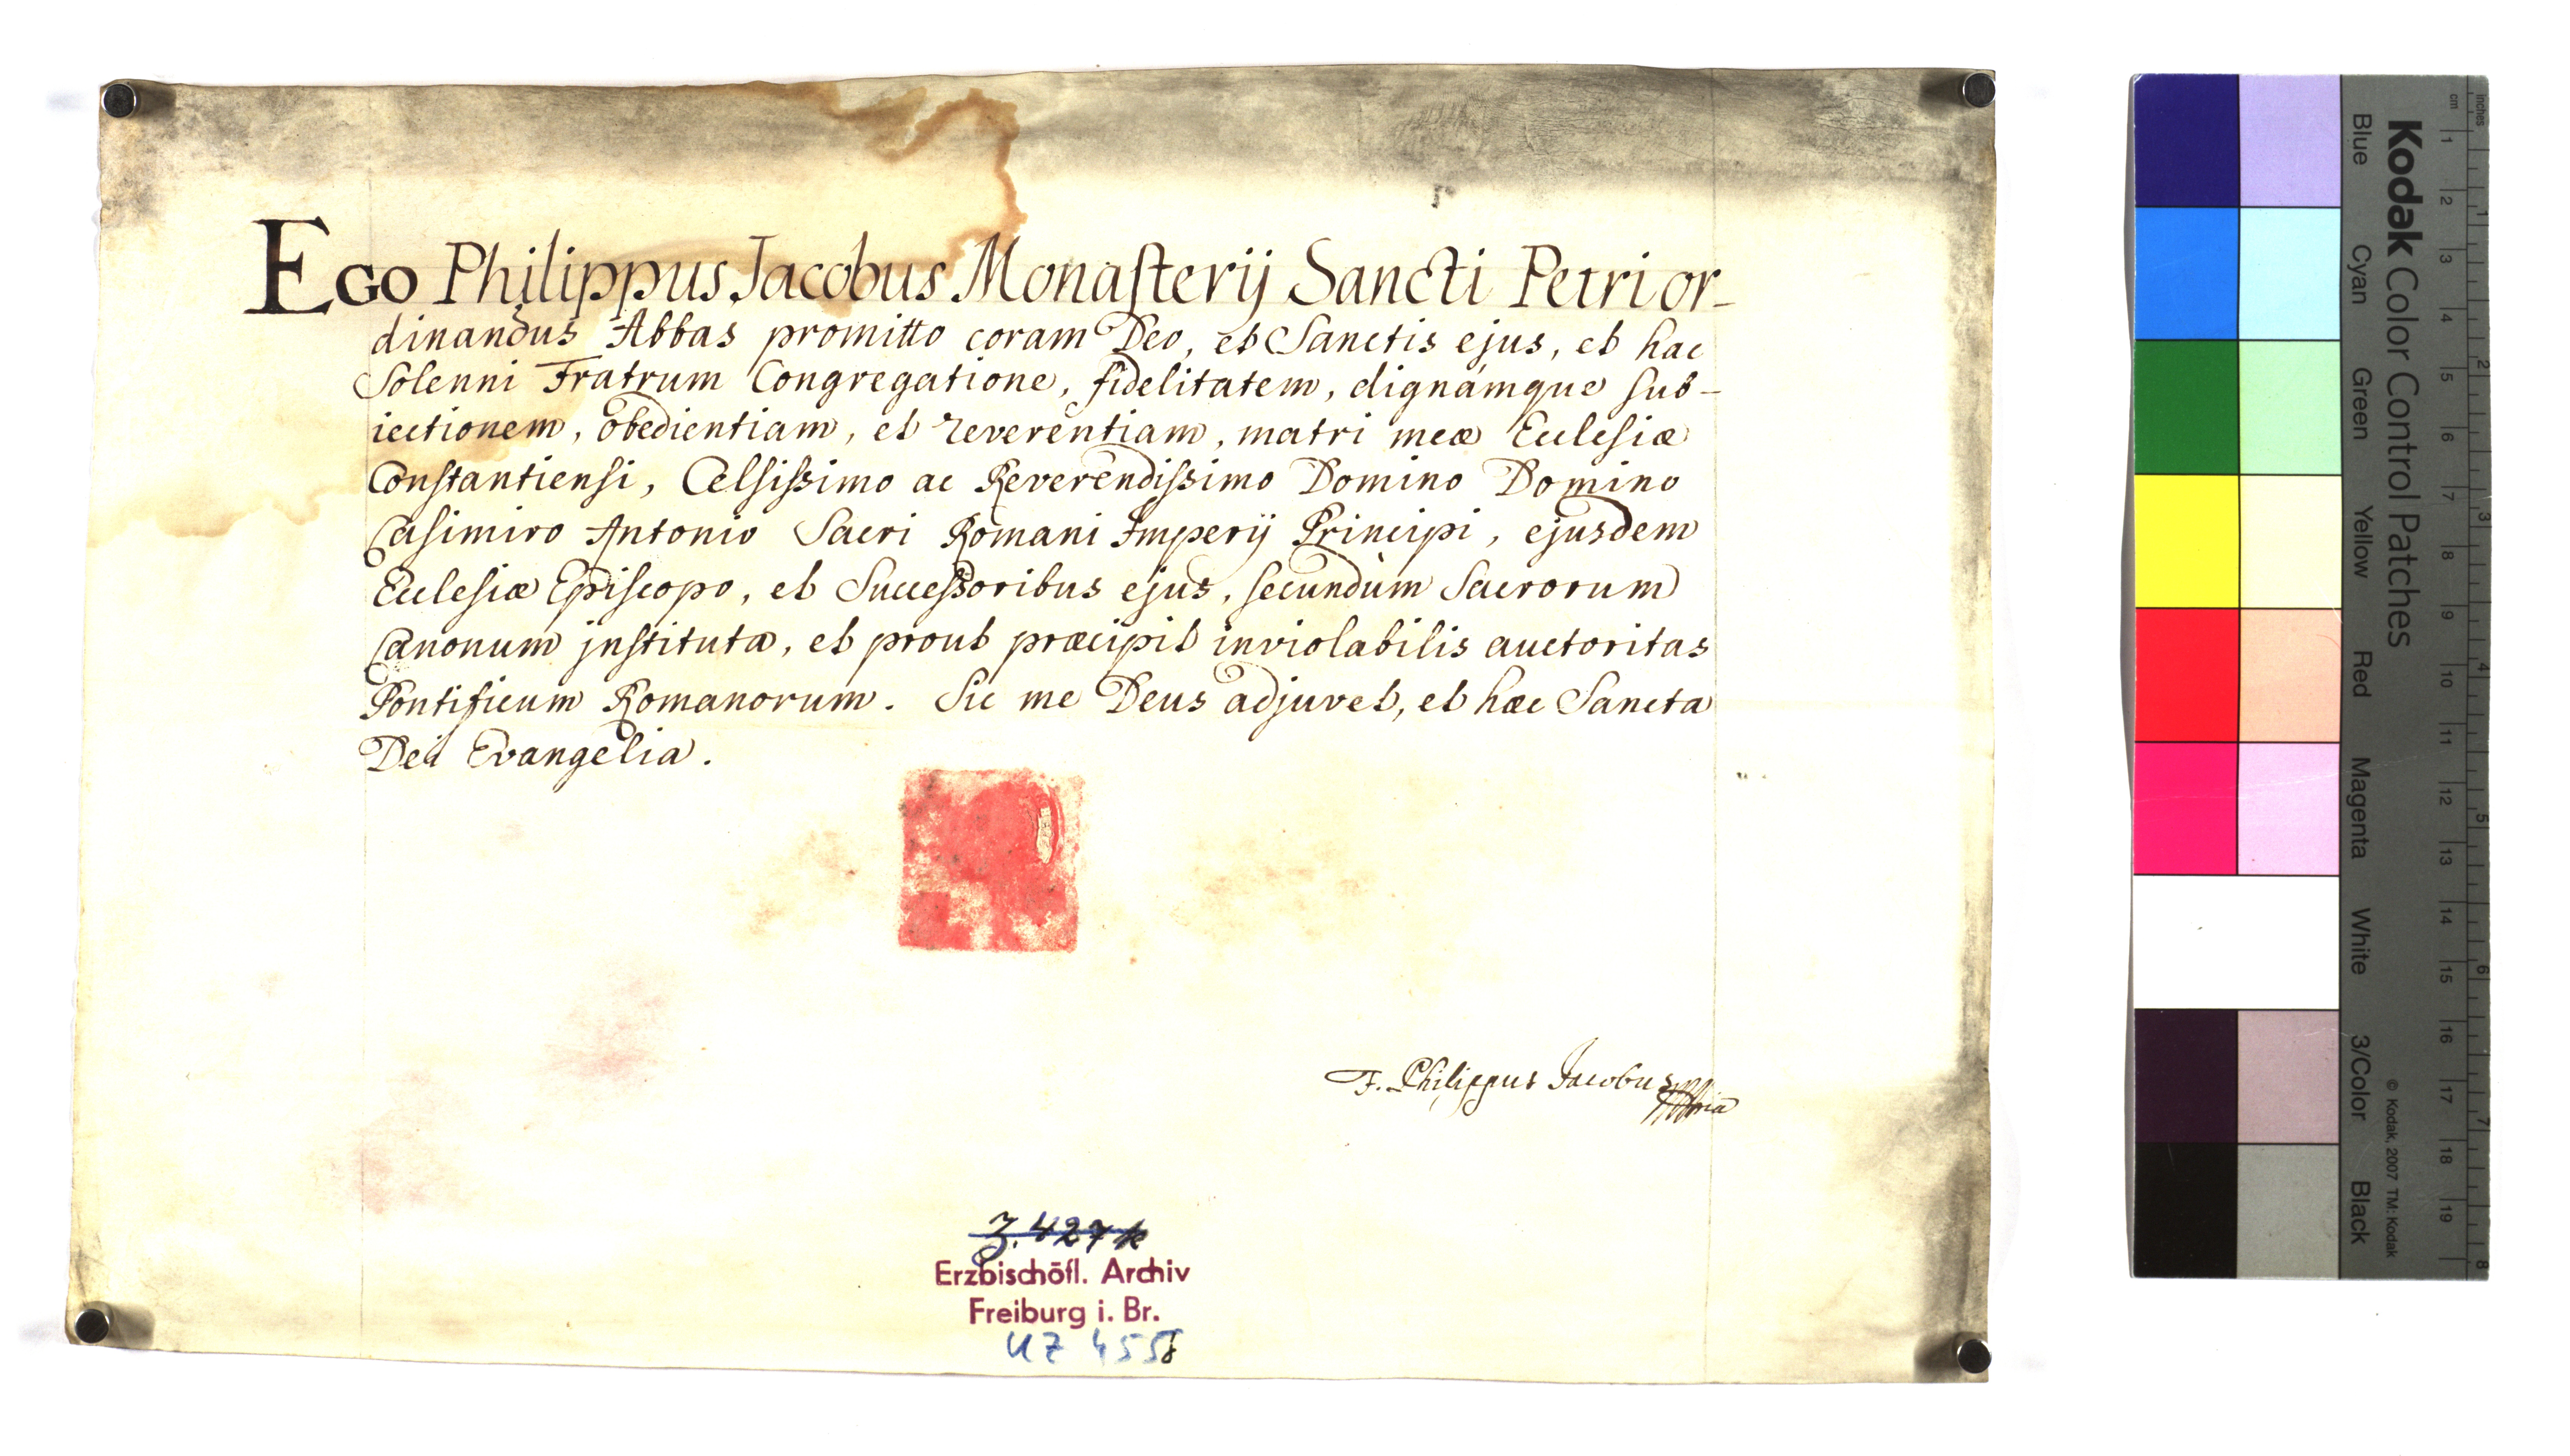 Ego Philippus Jacobus Monasterij Sancti Petri or-
dinandus Abbas promitto coram Deo, et Sanctis ejus, et hac
Solenni Fratrum Congregatione, fidelitatem, dignámque sub-
iectionem, obedientiam, et reverentiam, matri meæ Ecclesiæ
Constantiensi, Celsissimo ac Reverendissimo Domino Domino
Casimiro Antonio Sacri Romani Imperij Principi, ejusdem
Ecclesiæ Episcopo, et Successoribus ejus, secundùm Sacrorum
Canonum jnstituta, et prout præcipit inviolabilis auctoritas
Pontificum Romanorum. Sic me Deus adjuvet, et hæc Sancta
Dei Evangelia.
F. Philippus Jacobus
Z. 427k
Erzbischöfl. Archiv
Freiburg i. Br.
UZ 455
Kodak Color Control Patches
Blue Cyan Green Yellow Red Magenta White 3/Color Black
© Kodak, 2007 TM: Kodak
cm 1 2 3 4 5 6 7 8 9 10 11 12 13 14 15 16 17 18 19
inches 1 2 3 4 5 6 7 8